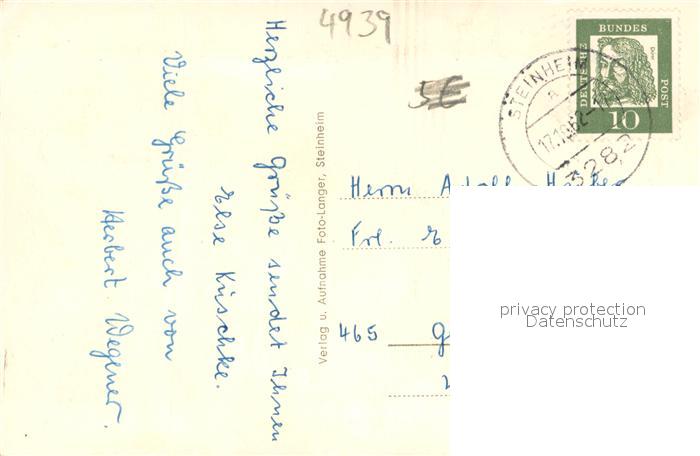 4939
5€
Herzliche Grüße sendet Ihnen
Else Küschke.
Viele Grüße auch von
Herbert Wegener.
Verlag u. Aufnahme Foto-Langer, Steinheim
DEUTSCHE
BUNDES
POST
Dürer
10
STEINHEIM
a
17.10.62
3282
Herrn Adolf
Frl. E
465
privacy protection
Datenschutz